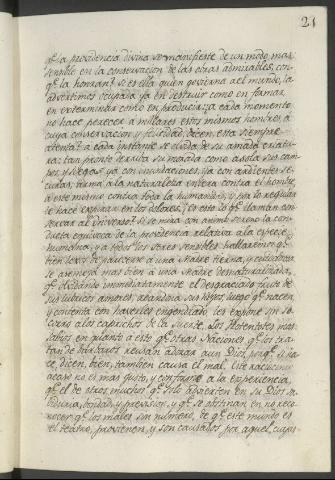 21
qe. la providencia divina se manifieste de un modo mas
sensible en la conservacion de las obras admirables, con
qe. la honran? si es ella quien govierna àel mundo, la
advertimos ocupada ya en destruir como en formar,
en exterminar como en producir: à cada momento
no hace perecer à millares estos mismos hombres, à
cuya conservacion y felicidad, dicen, està siempre
atenta? à cada instante se olvida de su amada criatu-
ra: tan pronto derriba su morada como assola sus cam-
pos y riegos, ya con inundaciones, ya con ardientes se-
curas; arma à la naturaleza entera contra el hombre,
à este mismo contra toda la humanidad, y por lo regular
le hace expirar en los dolores. Es esto lo qe. llaman con-
servar al Universo? Si se mira con animo sereno la con-
ducta equivoca de la providencia relativa à la especie
humana, y à todos los seres sensibles hallaremos qe.
bien lexos de parecerse à una Madre tierna, y cuidadosa
se asemeja mas bien à una Madre desnaturalizada,
qe. olvidando inmediatamente el desgraciado fruto de
sus lubricos amores, abandona sus hijos, luego qe. nacen,
y contenta con haverles engendrado les expone sin so-
corro à los caprichos de la suerte. Los Hotentotes mas
sabios en quanto à esto qe. otras Naciones, qe. los tra-
tan de barbaros reusan adorar aun Dios, porqe. si ha-
ce, dicen, bien, tambien causa el mal. Este raciocinio
acaso no es mas justo, y conforme à la experiencia,
qe. el de otros muchos qe. solo advierten en su Dios sa-
biduria, bondad, y prevision, y qe. se obstinan en no reco-
nocer qe. los males sin numero, de qe. este mundo es
el teatro, provienen, y son causados por aquel, cuias